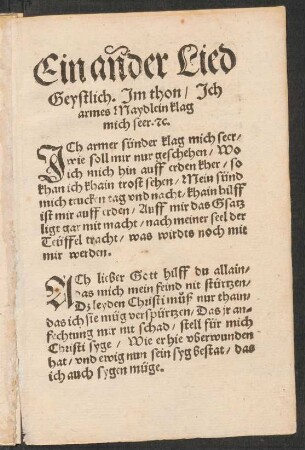 Ein ander Lied
Geystlich. Im thon / Ich
armes Maydlein klag
mich seer. ꝛc.
ICh armer sünder klag mich seer /
wie soll mir nur geschehen / Wo
ich mich hin auff erden kher / so
khan ich khain trost sehen / Mein sünd
mich trucken tag vnd nacht / khain hilff
ist mir auff erden / Auff mir das Gsatz
ligt gar mit macht / nach meiner seel der
Teüffel tracht / was wirdts noch mit
mir werden.
ACh lieber Gott hilff du allain /
das mich mein feind nit stürtzen /
Dz leyden Christi müß nur thain /
das ich sie müg verspürtzen / Das jr an=
fechtung mir nit schad / stell für mich
Christi syge / Wie er hie vberwunden
hat / vnd ewig nun sein syg bestat / das
ich auch sygen müge.